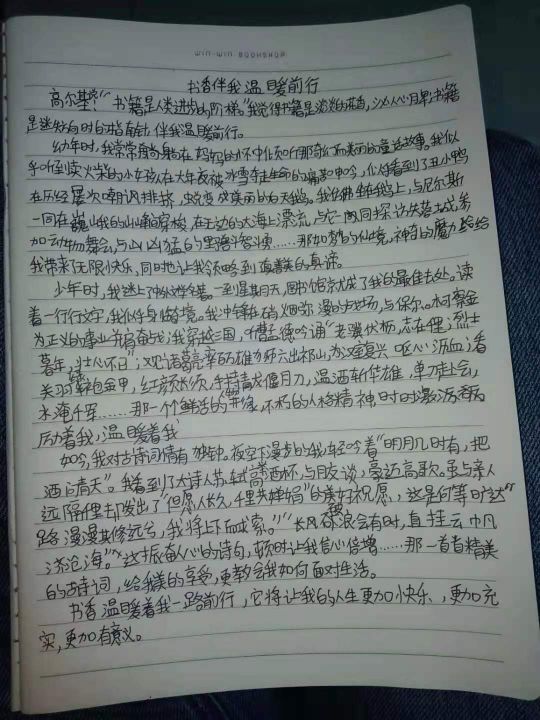 书香伴我温暖前行
高尔基说："书籍是人类进步的阶梯。"我觉得书籍是
是迷惘时的指南针，伴我温暖前行。
幼年时，我常常蜷身躺在妈妈的怀中倾听那奇幻而美丽的童话故事。我似
乎听到卖火柴的小女孩在大年夜被冰雪夺走生命的痛苦中吟，仿佛看到了丑小鸭
在历经屡次嘲讽排挤，蜕变成美丽的白天鹅。我仿佛坐在鹅上，与尼尔斯
一同在巍峨的山峰间穿梭，在无边的大海上漂流，与它一同探访失落古城，参
加动物舞会，与凶猛的黑鼠斗智斗勇……那如梦的仙境，神奇的魔力
我带来了无限快乐，同时也让我领略到真善美的真谛。
少年时，我迷上了中外名著。一到星期天，图书馆就成了我的最佳去处。读
着一行行文字，我似乎身临其境。我冲锋在硝烟弥漫的战场，与保尔·柯察金
为正义的事业并肩奋战；我穿越三国，听曹孟德吟诵"老骥伏枥，志在千里；烈士
暮年，壮心不已"；观诸葛亮率百万雄师六出祁山，为汉室复兴呕心沥血；看
关羽绿袍金甲，红颜长须，手持青龙偃月刀，温酒斩华雄，单刀赴会，
水淹七军……那一个个鲜活的英雄，不朽的人格精神，时时激
励着我，温暖着我
如今，我对古诗词情有独钟。夜空下漫步的我，轻吟着"明月几时有，把
酒问青天"。我看到了大诗人苏轼高洒怀与月交谈，豪迈高歌。虽与亲人
远隔千里却发出了"但愿人长久，千里共婵娟"的美好祝愿，这是何等旷达"
路漫漫其修远兮，我将上下而求索。""长风破浪会有时，直挂云帆
济沧海。"这振奋人心的诗句，顿时让我信心倍增……那一首首精美
的古诗词，给我美的享受，更教会我如何面对生活。
书香温暖着我一路前行，它将让我的人生更加快乐、更加充
实，更加有意义。